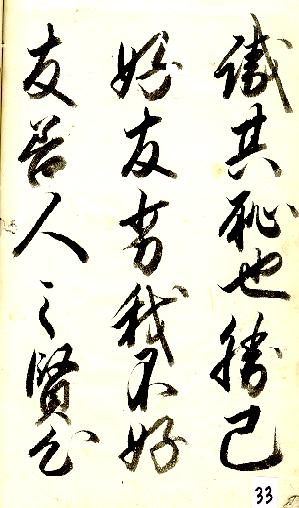 識其恥也勝己
好友劣我不好
友善人之賢
33